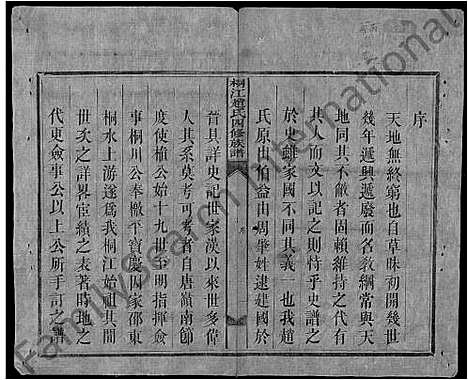 序
天地無終窮也自草昧初開幾世
幾年遞興遞廢而名教綱常與天
地同其不敝者固賴維持之代有
其人而文以記之則恃乎史譜之
於史雖家國不同其義一也我趙
氏原出伯益由周肇姓逮建國於
桐江趙氏四修族譜
序
一
晉具詳史記世家漢以來世多偉
人其系莫考可考者自唐嶺南節
度使植公始十九世至明指揮僉
事桐川公奉檄平寶慶因家邵東
桐水上游遂爲我桐江始祖其間
世次之詳畧宦績之表著時地之
代更僉事公以上公所手訂之譜
FamilySearch International